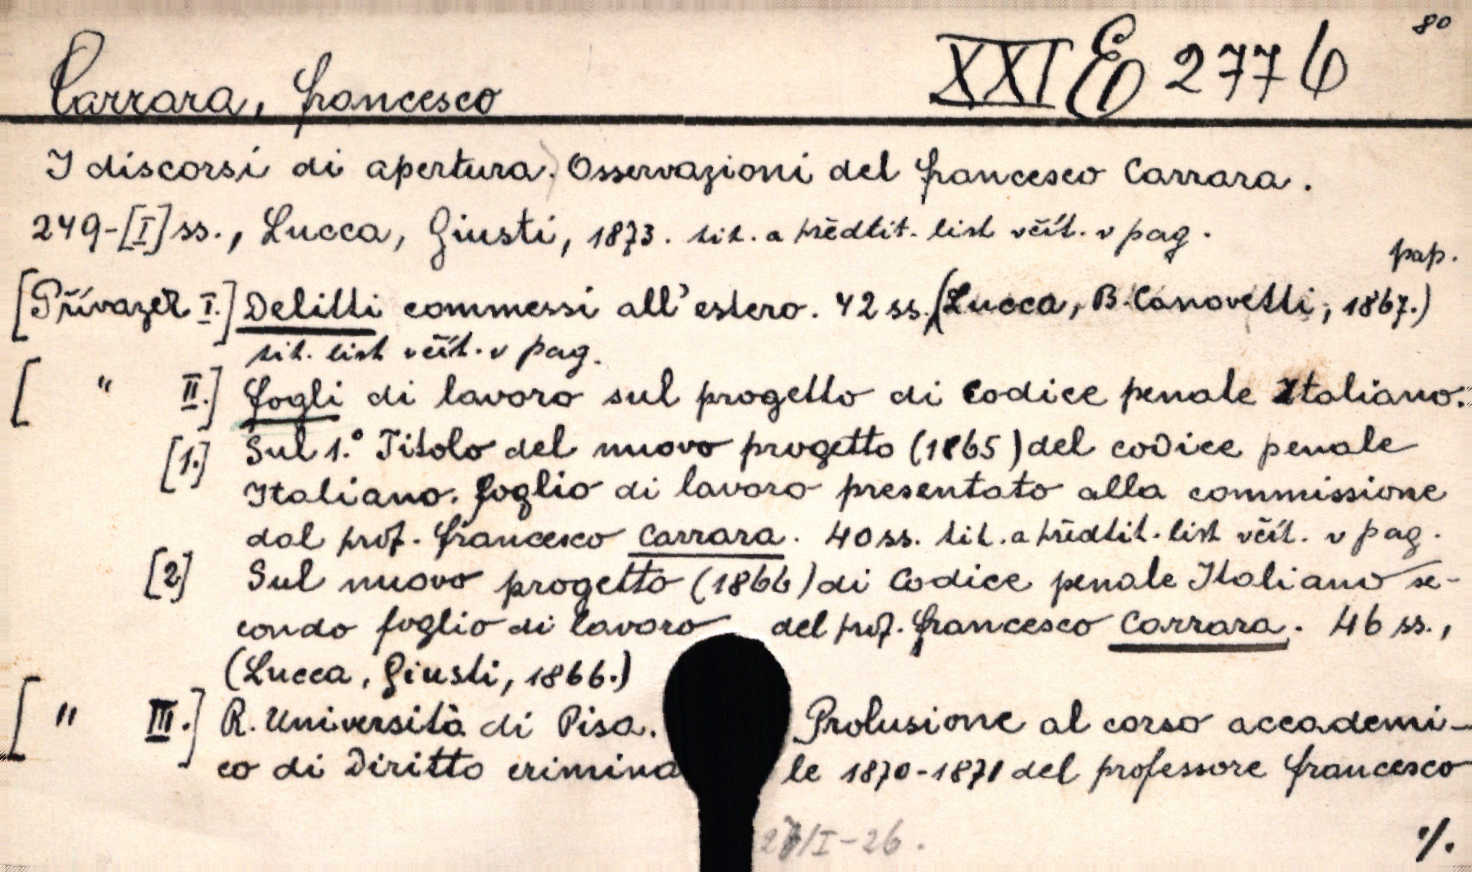 80
Carrara, Francesco XXI E 2776
I discorsi di apertura. Osservazioni del Francesco Carrara.
249-[I] ss., Lucca, Giusti, 1873. tit. a předtit. list včít. v pag.
pap.
[Přívazek I.] Delitti commessi all'estero. 42 ss. (Lucca, B. Canovetti, 1867.)
tit. list včít. v pag.
[ " II.] Fogli di lavoro sul progetto di Codice penale Italiano.
[1.] Sul 1.° Titolo del nuovo progetto (1865) del codice penale
Italiano. Foglio di lavoro presentato alla commissione
dal prof. Francesco Carrara. 40 ss. tit. a předtit. list včít. v pag.
[2] Sul nuovo progetto (1866) di Codice penale Italiano se-
condo foglio di lavoro del prof. Francesco Carrara. 46 ss.,
(Lucca, Giusti, 1866.)
[ " III.] R. Università di Pisa. Prolusione al corso accademi-
co di Diritto criminale 1870-1871 del professore Francesco
27/I-26. ./.